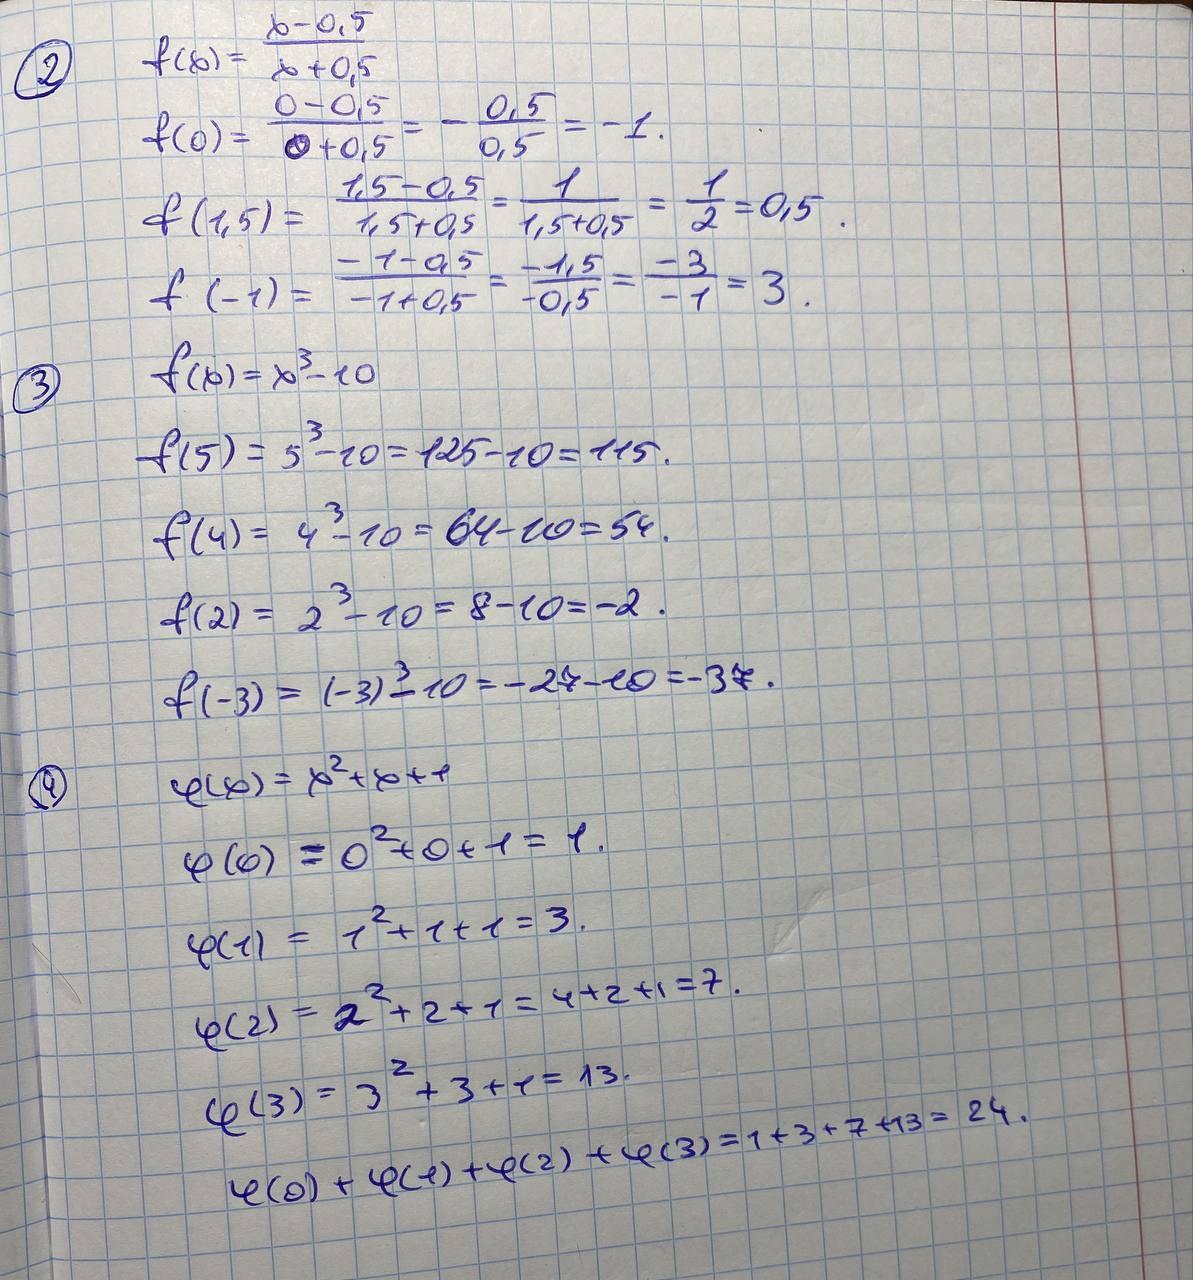 ② f(x) = (x-0,5)/(x+0,5)
f(0) = (0-0,5)/(0+0,5) = - 0,5/0,5 = -1.
f(1,5) = (1,5-0,5)/(1,5+0,5) = 1/(1,5+0,5) = 1/2 = 0,5.
f(-1) = (-1-0,5)/(-1+0,5) = -1,5/-0,5 = -3/-1 = 3.
③ f(x) = x³-10
f(5) = 5³-10 = 125-10 = 115.
f(4) = 4³-10 = 64-10 = 54.
f(2) = 2³-10 = 8-10 = -2.
f(-3) = (-3)³-10 = -27-10 = -37.
④ φ(x) = x²+x+1
φ(0) = 0²+0+1 = 1.
φ(1) = 1²+1+1 = 3.
φ(2) = 2²+2+1 = 4+2+1 = 7.
φ(3) = 3²+3+1 = 13.
φ(0)+φ(1)+φ(2)+φ(3) = 1+3+7+13 = 24.